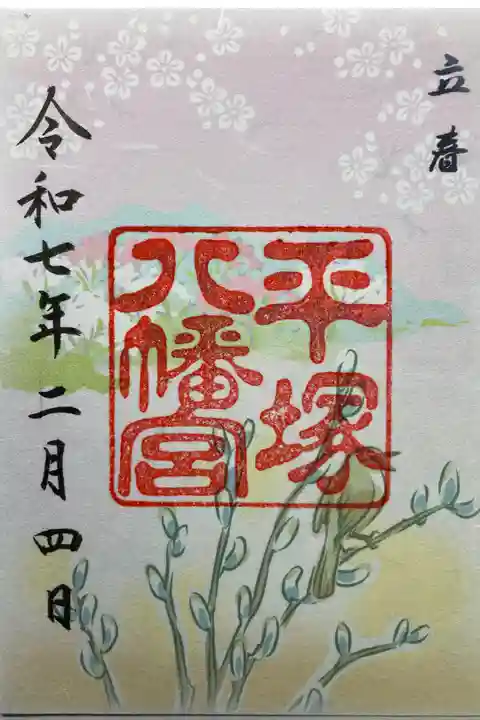 立春
平塚
八幡宮
令和七年二月四日